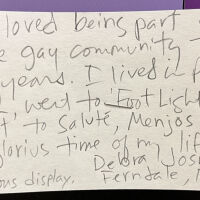 loved being part
e gay community
years. I lived in
, went to Footlight
t to Salute, Menjos
lorius time of my lif
Debra Jos
ous display. Ferndale,